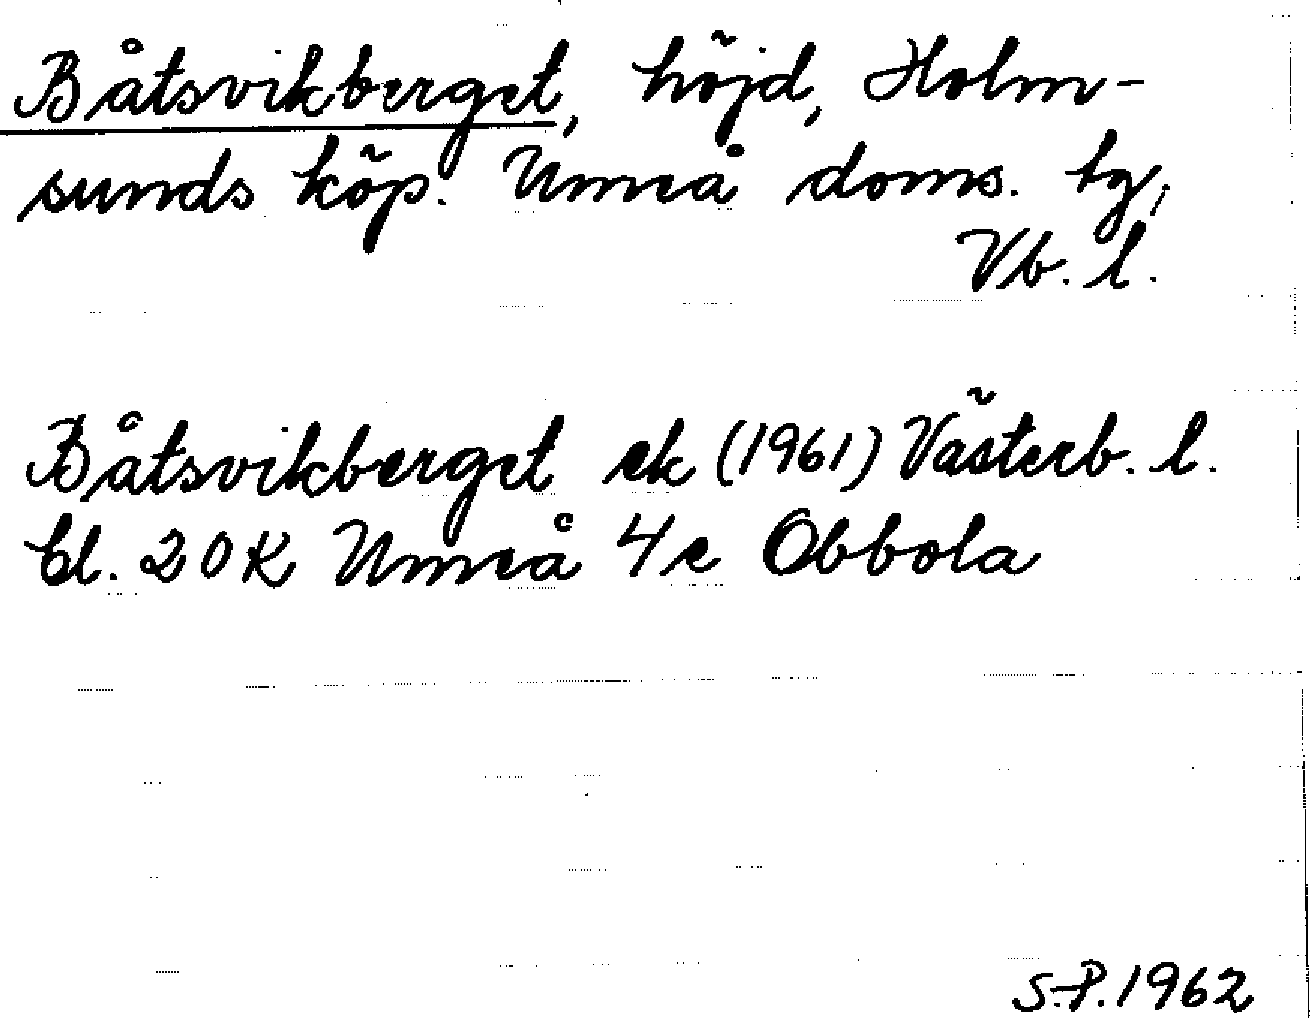 Båtsvikberget, höjd, Holm-
sunds köp. Umeå doms. tg,
Vb. l.
Båtsvikberget ek (1961) Västerb. l.
bl. 20K Umeå 4c Obbola
S.P. 1962